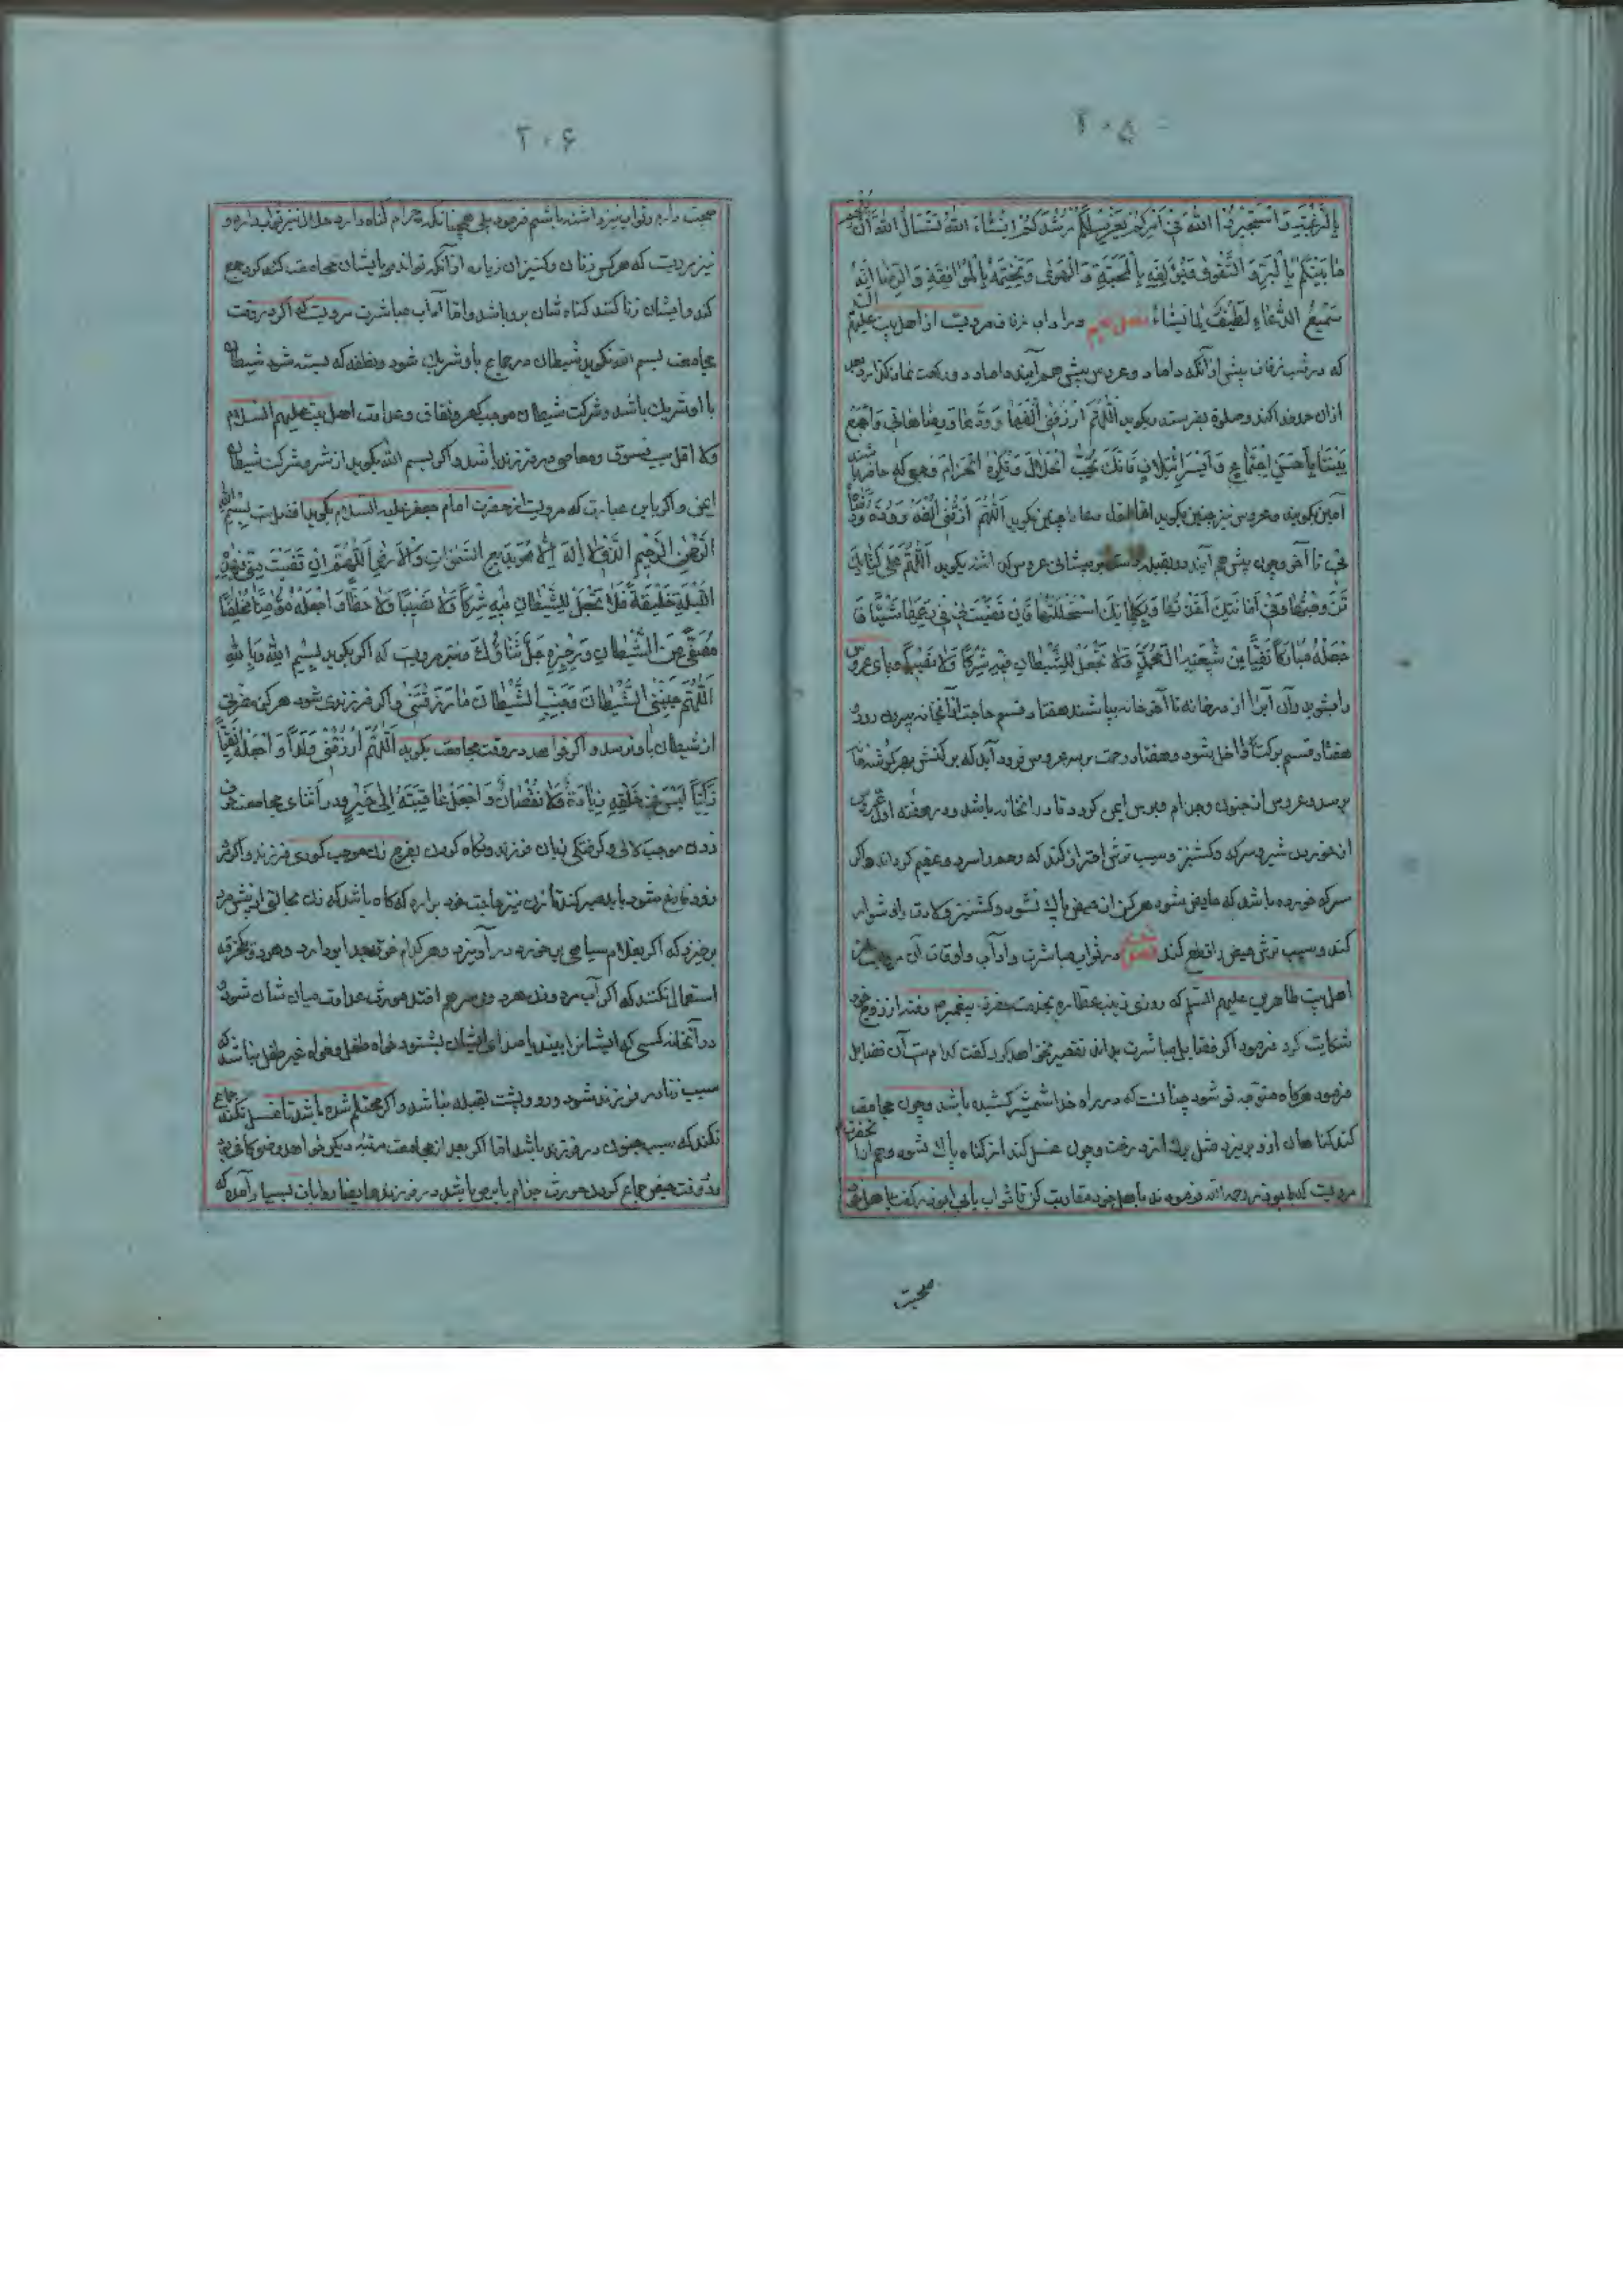 ۲۰۵
وَاسْتَجِيرُوا اللّهَ فِي أَمْرِكُمْ يَعْزِمْ لَكُمْ رُشْدَكُمْ اِنْشَاءَ اللّهُ نَسْأَلُ اللّهَ اَنْ
مَا بَيْنَكُمْ بِالْبَرِّ وَ التَّقْوى وَ بِالْمَحَبَّةِ وَ الْهَوى وَ يَخْتِمَهُ بِالْمُوَافِقَةِ وَ الرِّضَا اِنَّهُ
سَمِيعُ الدُّعَاءِ لَطِيفٌ لِمَا يَشَاءُ در اداب زفاف مرویست از اهل بیت علیهم
که در شب زفاف پیش از آنکه داماد و عروس پیش هم آیند داماد دو رکعت نماز بگذارد بعد
ازان حمد خدا کند و صلوة بفرستد و بکوید اَللّهُمَّ ارْزُقْنِي وَ اجْمَعْ
بَيْنَنَا بِاَحْسَنِ اِجْتِمَاعٍ وَ فَاِنَّكَ تُحِبُّ الْحَلَالَ وَ تَكْرَهُ الْحَرَامَ و هر که حاضر باشند
آمین بکویند و عروس نیز چنین بکوید چنین بکوید اَللّهُمَّ ارْزُقْنِي اُلْفَهُ وَ وُدَّهُ
تا آخر و چون پیش هم آیند رو بقبله دست بر پیشانی عروس کذاشته بکوید اَللّهُمَّ عَلى كِتَابِكَ
تَزَوَّجْتُهَا وَ فِي اَمَانَتِكَ اَخَذْتُهَا وَ بِكَلِمَاتِكَ اسْتَحْلَلْتُهَا فَاِنْ قَضَيْتَ لِي فِي رَحِمِهَا شَيْئًا فَا
جْعَلْهُ مُبَارَكًا تَقِيًّا مِنْ شِيعَةِ الِ مُحَمَّدٍ وَ لَا تَجْعَلْ لِلشَّيْطَانِ فِيهِ شِرْكًا وَ لَا نَصِيبًا پای عروس
را بشوید و آن آب را از در خانه تا آخر خانه بپاشند هفتاد قسم از آنخانه بیرون رود
هفتاد قسم برکت داخل شود و هفتاد رحمت بر سر عروس فرود آید که برکتش بهر کوشه خانه
برسد و عروس از جنون و جذام و برص ایمن کردد تا در انخانه باشد و در هفته اول عروس
از خوردن شیر و سرکه و کشنیز و سیب ترش احتراز کند که رحم را سرد و عقیم کرداند و اکر
سرکه خورده باشد که حایض شود هرکز از حیض پاك نشود و کشنیز ولادت را دشوار
کند و سیب ترش حیض را قطع کند فصل در ثواب مباشرت و آداب و اوقات آن
اهل بیت طاهرین علیهم السلم که روزی زینب عطاره بخدمت حضرت پیغمبر ص رفته از زوج خود
شکایت کرد فرمود اکر فضایل مباشرت بداند تقصیر نخواهد کرد کفت کدام است آن فضایل
فرمود هرکاه متوجه تو شود چنانست که در راه خدا شمشیر کشیده باشد و چون مجامعت
کند کناهان ازو بریزد مثل برك از درخت و چون غسل کند از کناه پاك شود و هم از آنحضرت
مرویست که ابوذر رحمه الله فرموده با اهل خود مقاربت کن تا ثواب یابی ابوذر کفت با اهل خود
صحبت
۲۰۶
صحبت دارم و ثواب نیز داشته باشم فرمود بلی همچنانکه حرام کناه دارد حلال نیز ثواب دارد و
نیز مرویست که هر کس زنان و کنیزان زیاده از آنکه تواند با ایشان مجامعت کند جمع
کند و ایشان زنا کنند کناه شان برو باشد و اما آداب مباشرت مرویست که اکر در وقت
مجامعت بسم الله نکوید شیطان در جماع با و شریك شود و نطفه که بسته شود شیطان
با او شریك باشد و شرکت شیطان موجب کفر و نفاق و عداوت اهل بیت علیهم السلام
و لا اقل سبب فسوق و معاصی در فرزند باشد و اکر بسم الله بکوید از شر و شرکت شیطان
ایمن و اکر باین عبارت که مرویست از حضرت امام جعفر علیه السلام بکوید افضل است بِسْمِ اللّهِ
الرَّحْمنِ الرَّحِيمِ الَّذِي لَا اِلهَ اِلَّا هُوَ بَدِيعِ السَّموَاتِ وَ الْاَرْضِ اَللّهُمَّ اِنْ قَضَيْتَ مِنِّي فِي هذِهِ
اللَّيْلَةِ خَلِيفَةً فَلَا تَجْعَلْ لِلشَّيْطَانِ فِيهِ شِرْكًا وَ لَا نَصِيبًا وَ لَا حَظًّا وَ اجْعَلْهُ مُؤْمِنًا مُخْلِصًا
مُصَفًّى مِنَ الشَّيْطَانِ وَ رِجْزِهِ جَلَّ ثَنَاؤُكَ و نیز مرویست که اکر بکوید بِسْمِ اللّهِ وَ بِاللّهِ
اَللّهُمَّ جَنِّبْنِي الشَّيْطَانَ وَ جَنِّبِ الشَّيْطَانَ مَا رَزَقْتَنِي و اکر فرزندی شود هرکز مضرتی
از شیطان باو نرسد و اکر خواهد در وقت مجامعت بکوید اَللّهُمَّ ارْزُقْنِي وَلَدًا وَ اجْعَلْهُ تَقِيًّا
زَكِيًّا لَيْسَ فِي خَلْقِهِ زِيَادَةٌ وَ لَا نُقْصَانٌ وَ اجْعَلْ عَاقِبَتَهُ اِلى خَيْرٍ و در اثنای مجامعت حرف
زدن موجب لالی و کرفتکی زبان فرزند و نکاه کردن بفرج زن موجب کوری فرزند و اکر مرد
زود فارغ شود باید صبر کند تا زن نیز حاجت خود برارد که کاه باشد که زن از پیش مرد
برخیزد که اکر بغلام سیاهی برخورد در آویزد و هر کدام خرقه جدا بردارد و هر دو یکخرقه
استعمال نکنند که اکر آب مرد و زن هر دو بر سر هم افتد مورث عداوت میان شان شود و
در آنخانه کسی که ایشانرا ببیند یا صدای ایشان بشنود خواه طفل و خواه غیر طفل نباشد که
سبب زنا در فرزند شود و رو و پشت بقبله نباشد و اکر محتلم شده باشد تا غسل نکند جماع
نکند که سبب جنون در فرزند باشد اما اکر بعد از مجامعت مرتبه دیکر خواهد وضو کافیست
و در وقت حیض جماع کردن مورث جذام یا برص باشد در فرزند و ایضا روایات بسیار آمده که